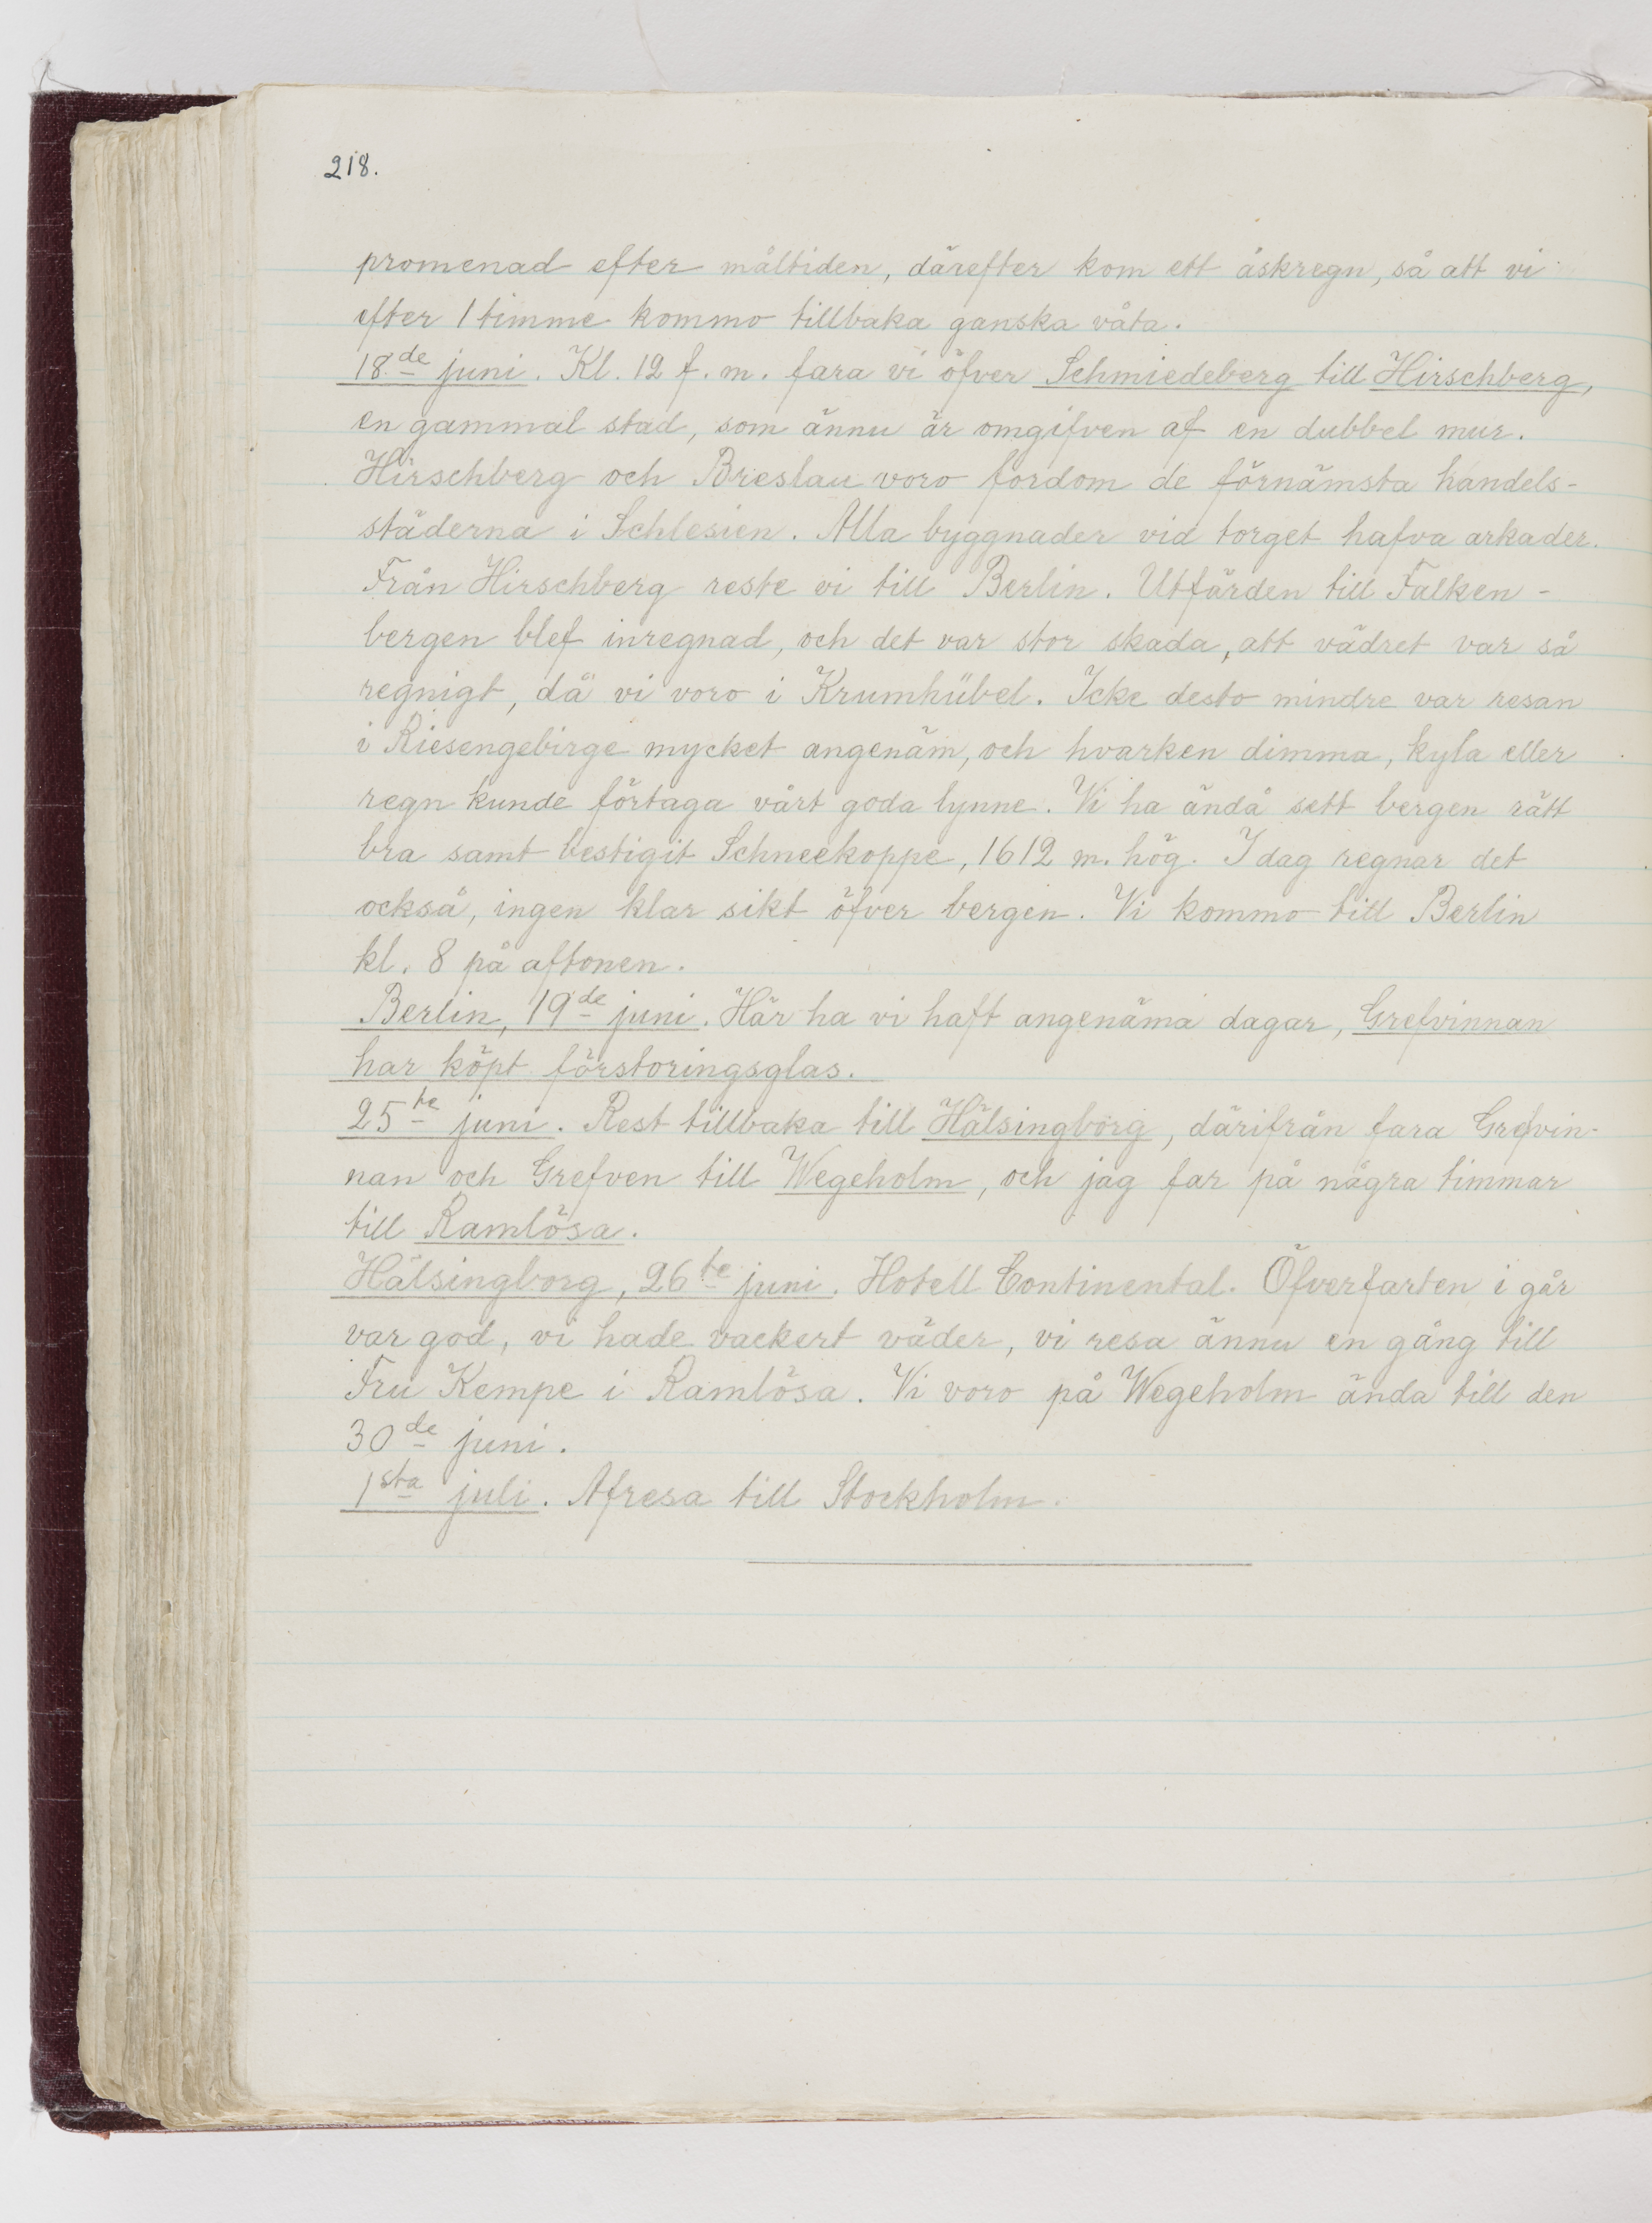 218.
promenad efter måltiden, därefter kom ett åskregn, så att vi
efter 1 timme kommo tillbaka ganska våta.
18de juni. Kl. 12 f. m. fara vi öfver Schmiedeberg till Hirschberg,
en gammal stad, som ännu är omgifven af en dubbel mur.
Hirschberg och Breslau voro fordom de förnämsta handels-
städerna i Schlesien. Alla byggnader vid torget hafva arkader.
Från Hirschberg reste vi till Berlin. Utfärden till Falken-
bergen blef inregnad, och det var stor skada, att vädret var så
regnigt, då vi voro i Krumhübel. Icke desto mindre var resan
i Riesengebirge mycket angenäm, och hvarken dimma, kyla eller
regn kunde förtaga vårt goda lynne. Vi ha ändå sett bergen rätt
bra samt bestigit Schneekoppe, 1612 m. hög. I dag regnar det
också, ingen klar sikt öfver bergen. Vi kommo till Berlin
kl. 8 på aftonen.
Berlin, 19de juni. Här ha vi haft angenäma dagar, Grefvinnan
har köpt förstoringsglas.
25te juni. Rest tillbaka till Hälsingborg, därifrån fara Grefvin-
nan och Grefven till Wegeholm, och jag far på några timmar
till Ramlösa.
Hälsingborg, 26te juni. Hotell Continental. Öfverfarten i går
var god, vi hade vackert väder, vi resa ännu en gång till
Fru Kempe i Ramlösa. Vi voro på Wegeholm ända till den
30de juni.
1sta juli. Afresa till Stockholm.